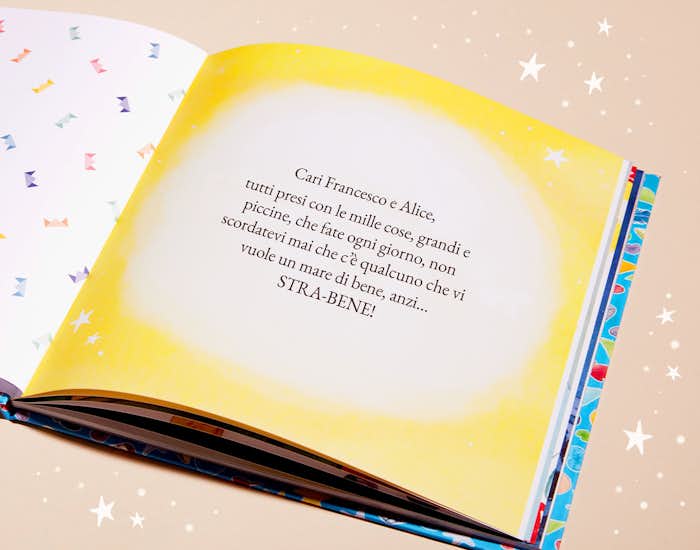 Cari Francesco e Alice,
tutti presi con le mille cose, grandi e
piccine, che fate ogni giorno, non
scordatevi mai che c'è qualcuno che vi
vuole un mare di bene, anzi...
STRA-BENE!